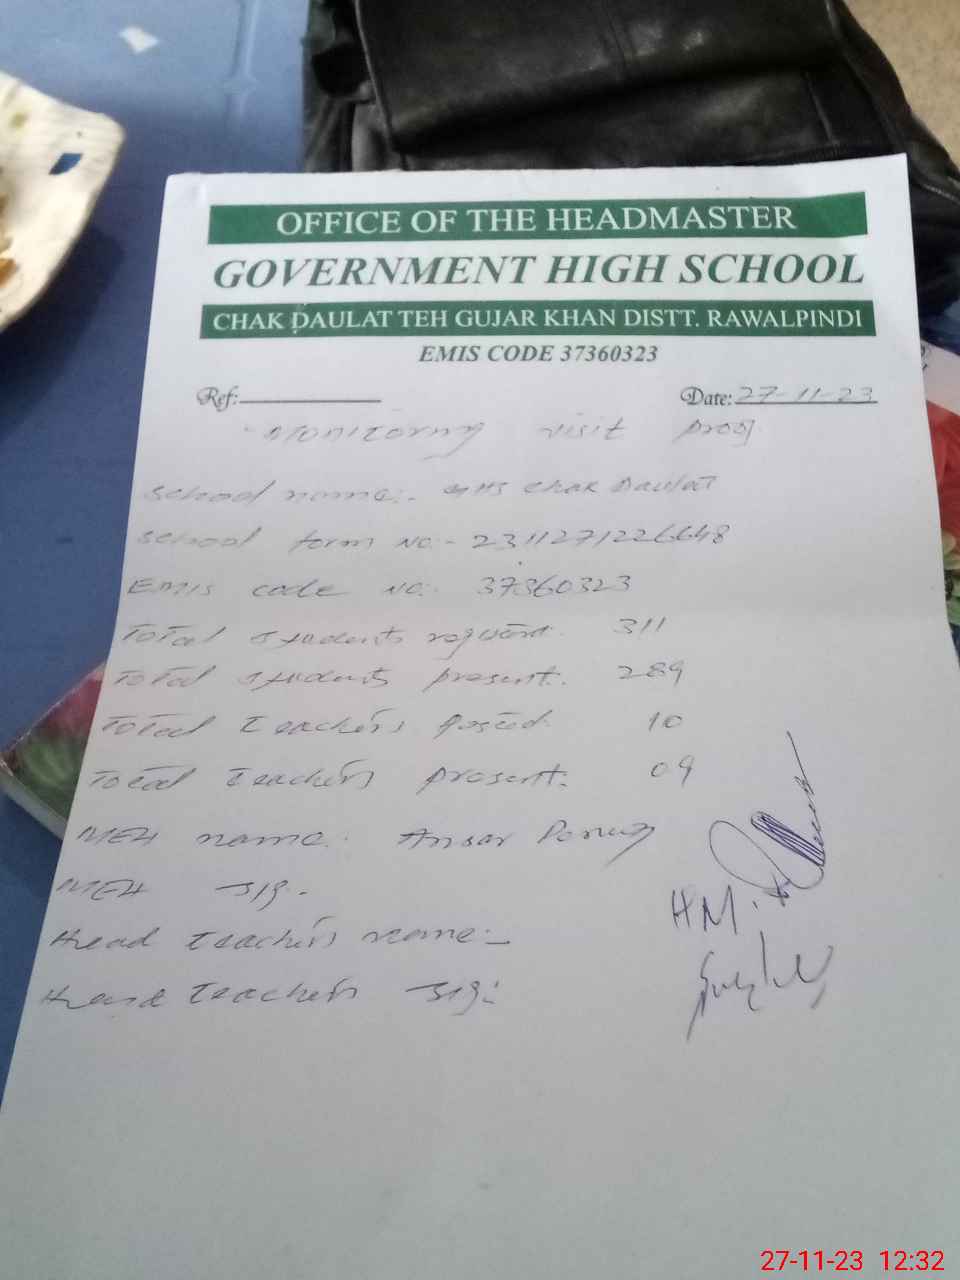 OFFICE OF THE HEADMASTER
GOVERNMENT HIGH SCHOOL
CHAK DAULAT TEH GUJAR KHAN DISTT. RAWALPINDI
EMIS CODE 37360323
Ref: Date: 27-11-23
Monitoring visit proof
School name:- GHS Chak Daulat
School form No:- 2311271226648
EMIS code No:- 37360323
Total students 311
Total students present. 289
Total teachers posted. 10
Total teachers present: 09
name. Ansar
Sig.
HM.
Head teacher's name:-
Head teacher's Sig:
27-11-23 12:32